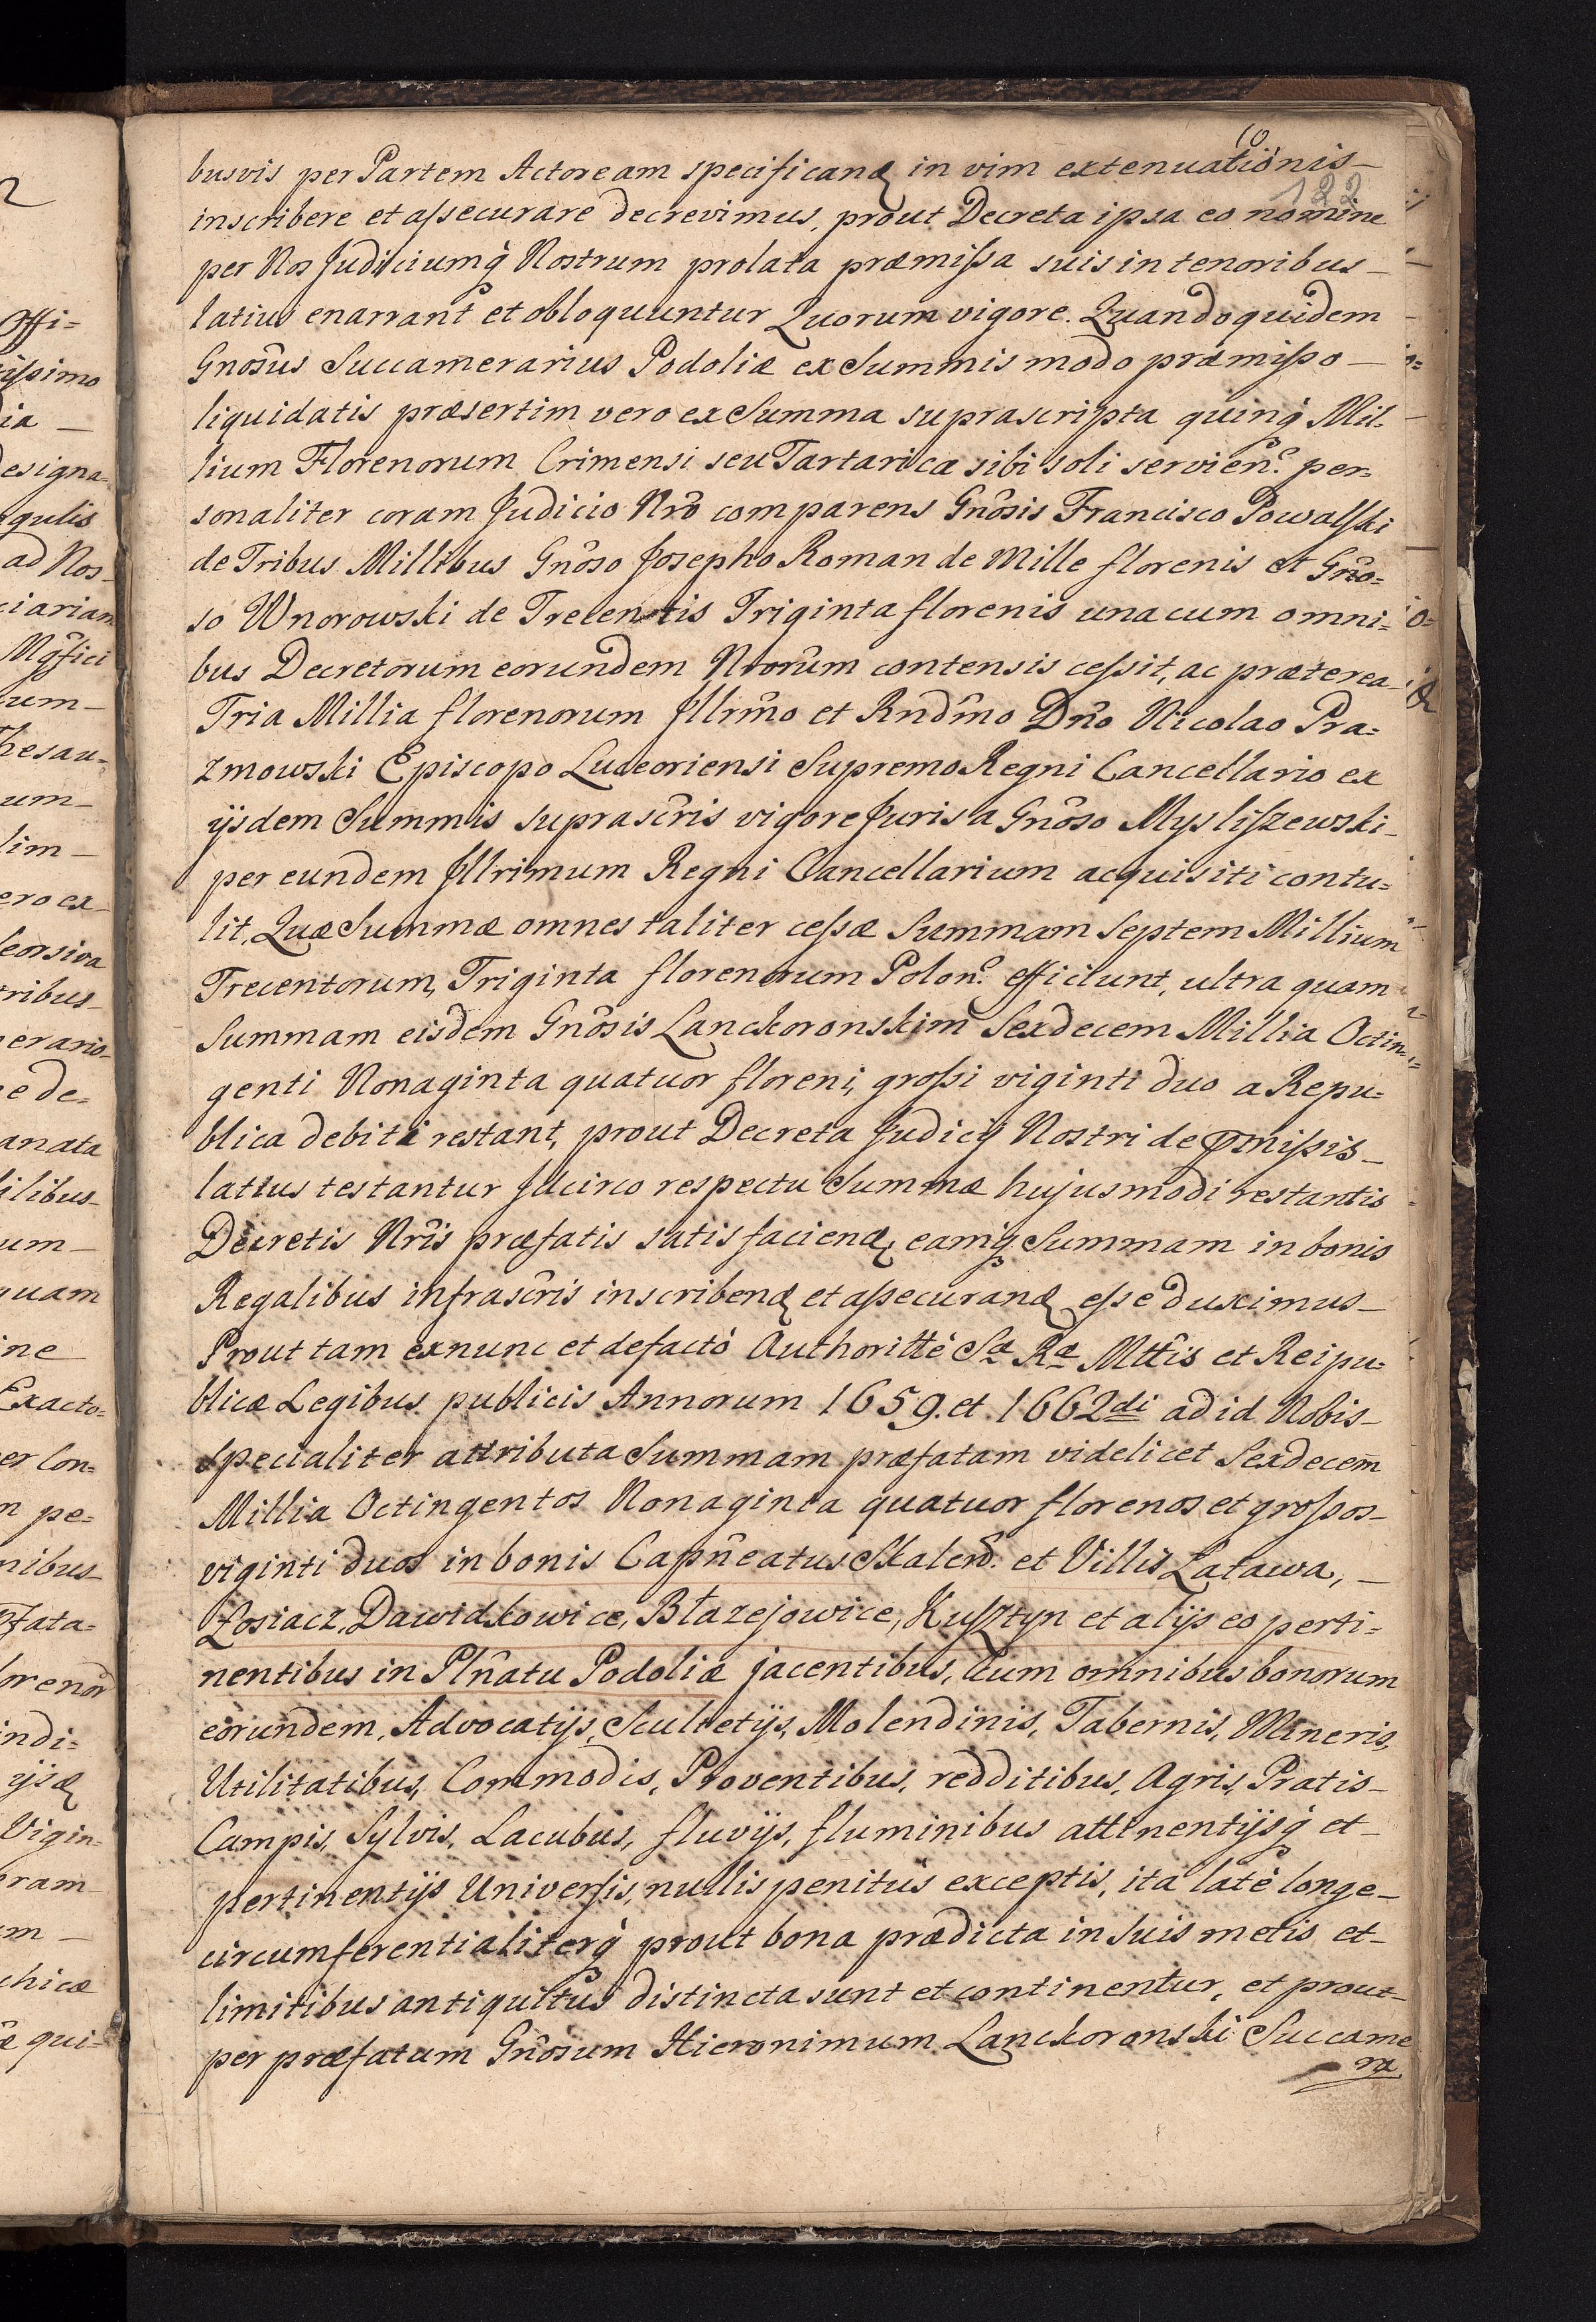 busvis per Partem Actoream specificand in vim extenuationis
122
inscribere et assecurare decrevimus, prout Decreta ipsa eo nomine
per Nos Judiciumq̀ Nostrum prolata præmissa suis in tenoribus
latius enarrant et obloquuntur Quorum vigore. Quandoquidem
Gnosus Succamerarius Podoliæ ex Summis modo præmisso
liquidatis præsertim vero ex Summa suprascripta quinq̀ Mil-
lium Florenorum Crimensi seu Tartaricæ sibi soli servien. per=
sonaliter coram Judicio Nro comparens Gnosis Francisco Powalski
de Tribus Millibus Gnoso Josepho Roman de Mille florenis et Gno=
so Wnorowski de Trecentis Triginta florenis una cum omni=
bus Decretorum eorundem Nrorum contensis cessit, ac præterea
Tria Millia florenorum Jllrmo et Rndmo Dno Nicolao Pra=
zmowski Episcopo Luceoriensi Supremo Regni Cancellario ex
ijsdem Summis suprascris vigore Juris a Gnoso Myslissewski
per eundem Jllrimum Regni Cancellarium acquisiti contu=
lit, Quæ Summæ omnes taliter cessæ Summam Septem Millium
Trecentorum, Triginta florenorum Polon. efficiunt, ultra quam
Summam eisdem Gnosis Lanckoronskim Sexdecem Millia Octin=
genti Nonaginta quatuor floreni, grossi viginti duo a Repu=
blica debiti restant, prout Decreta Judicij Nostri de pmissis
latius testantur Jdcirco respectu Summæ hujusmodi restantis
Decretis Nris præfatis satis faciend, eamq Summam in bonis
Regalibus infrascris inscribend et assecurand esse duximus
Prout tam exnunc et defactò Authoritte Sæ Ræ Mttis et Reipu=
blicæ Legibus publicis Annorum 1659. et 1662di ad id Nobis
specialiter attributa Summam præfatam videlicet Sexdecem
Millia Octingentos Nonaginta quatuor florenos et grossos
viginti duos in bonis Capneatus Skalen. et Villis Łatawa,
Łosiacz, Dawidkowice, Błazejowice, Kusztyn et alijs eo perti=
nentibus in Plnatu Podoliæ jacentibus, Cum omnibus bonorum
eorundem, Advocatijs, Scultetijs, Molendinis, Tabernis, Mineris,
Utilitatibus, Commodis, Proventibus, redditibus, Agris, Pratis
Campis, Sylvis, Lacubus, fluvijs, fluminibus attinentijsq̀ et
pertinentijs Universis, nullis penitus exceptis, ita latè longe
circumferentialiterq̀ prout bona prædicta in Suis metis et
limitibus antiquitus distincta sunt et continentur, et prout
per præfatum Gnosum Hieronimum Lanckoronski Succame
ra